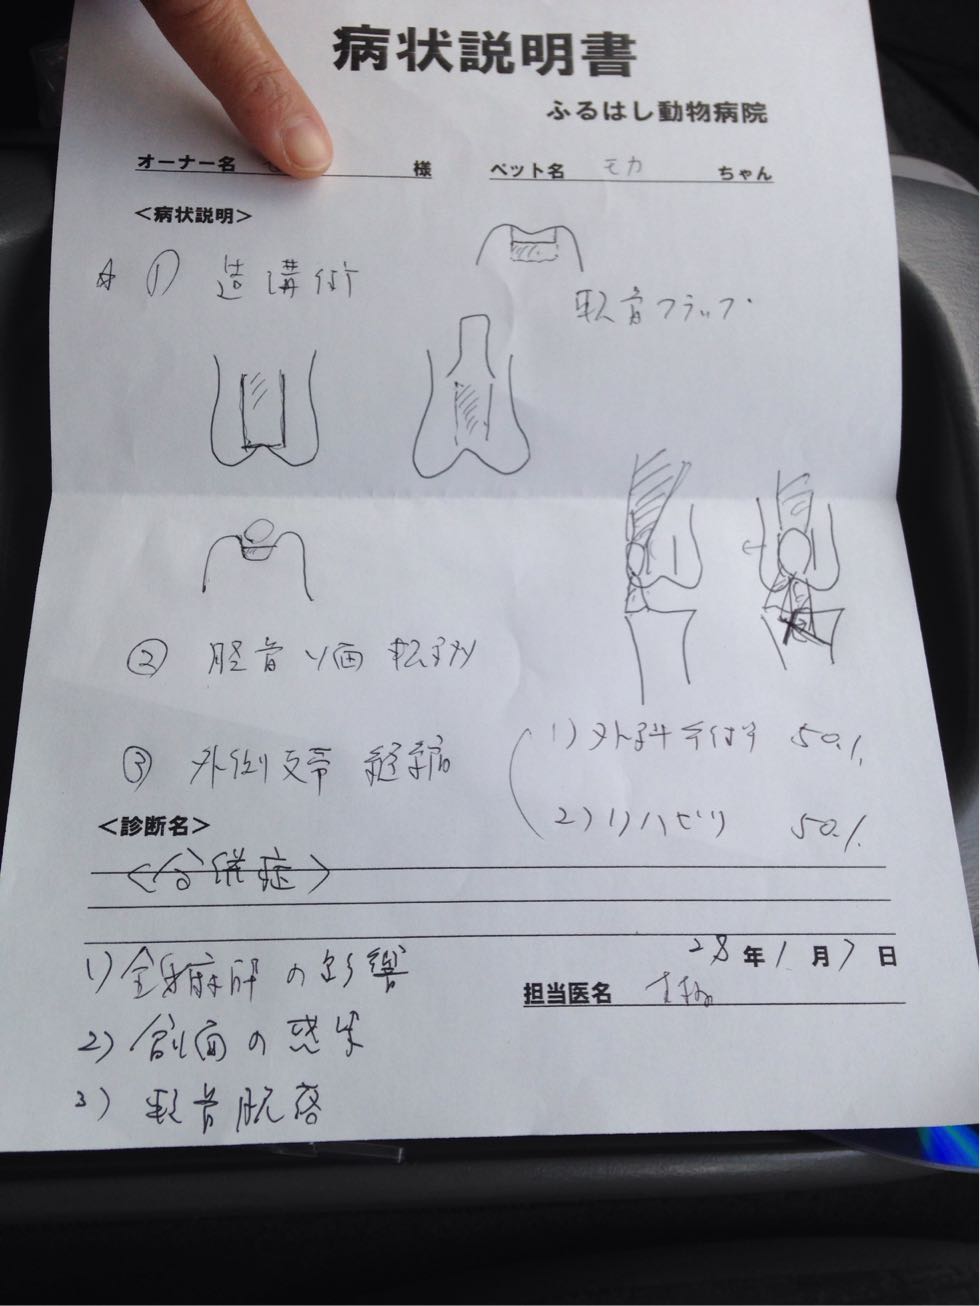 病状説明書
ふるはし動物病院
オーナー名 様 ペット名 モカ ちゃん
<病状説明>
☆ ① 造溝術
軟骨フラップ
② 脛骨 転移
③ 外側支帯 縫縮
1) 外科手術 50%
2) リハビリ 50%
<診断名>
<合併症>
28年1月7日
担当医名
1) 全身麻酔の影響
2) 創面の感染
3) 軟骨脱落